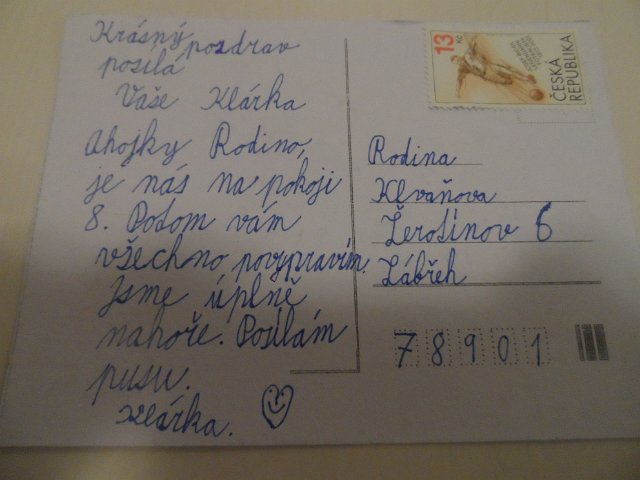 Krásný pozdrav
posílá
Vaše Klárka
Ahojky Rodino,
je nás na pokoji
8. Potom vám
všechno povypravím.
Jsme úplně
nahoře. Posílám
pusu.
Klárka.
13 Kč
ČESKÁ
REPUBLIKA
Rodina
Klvaňova
Žerotínov 6
Zábřeh
78901